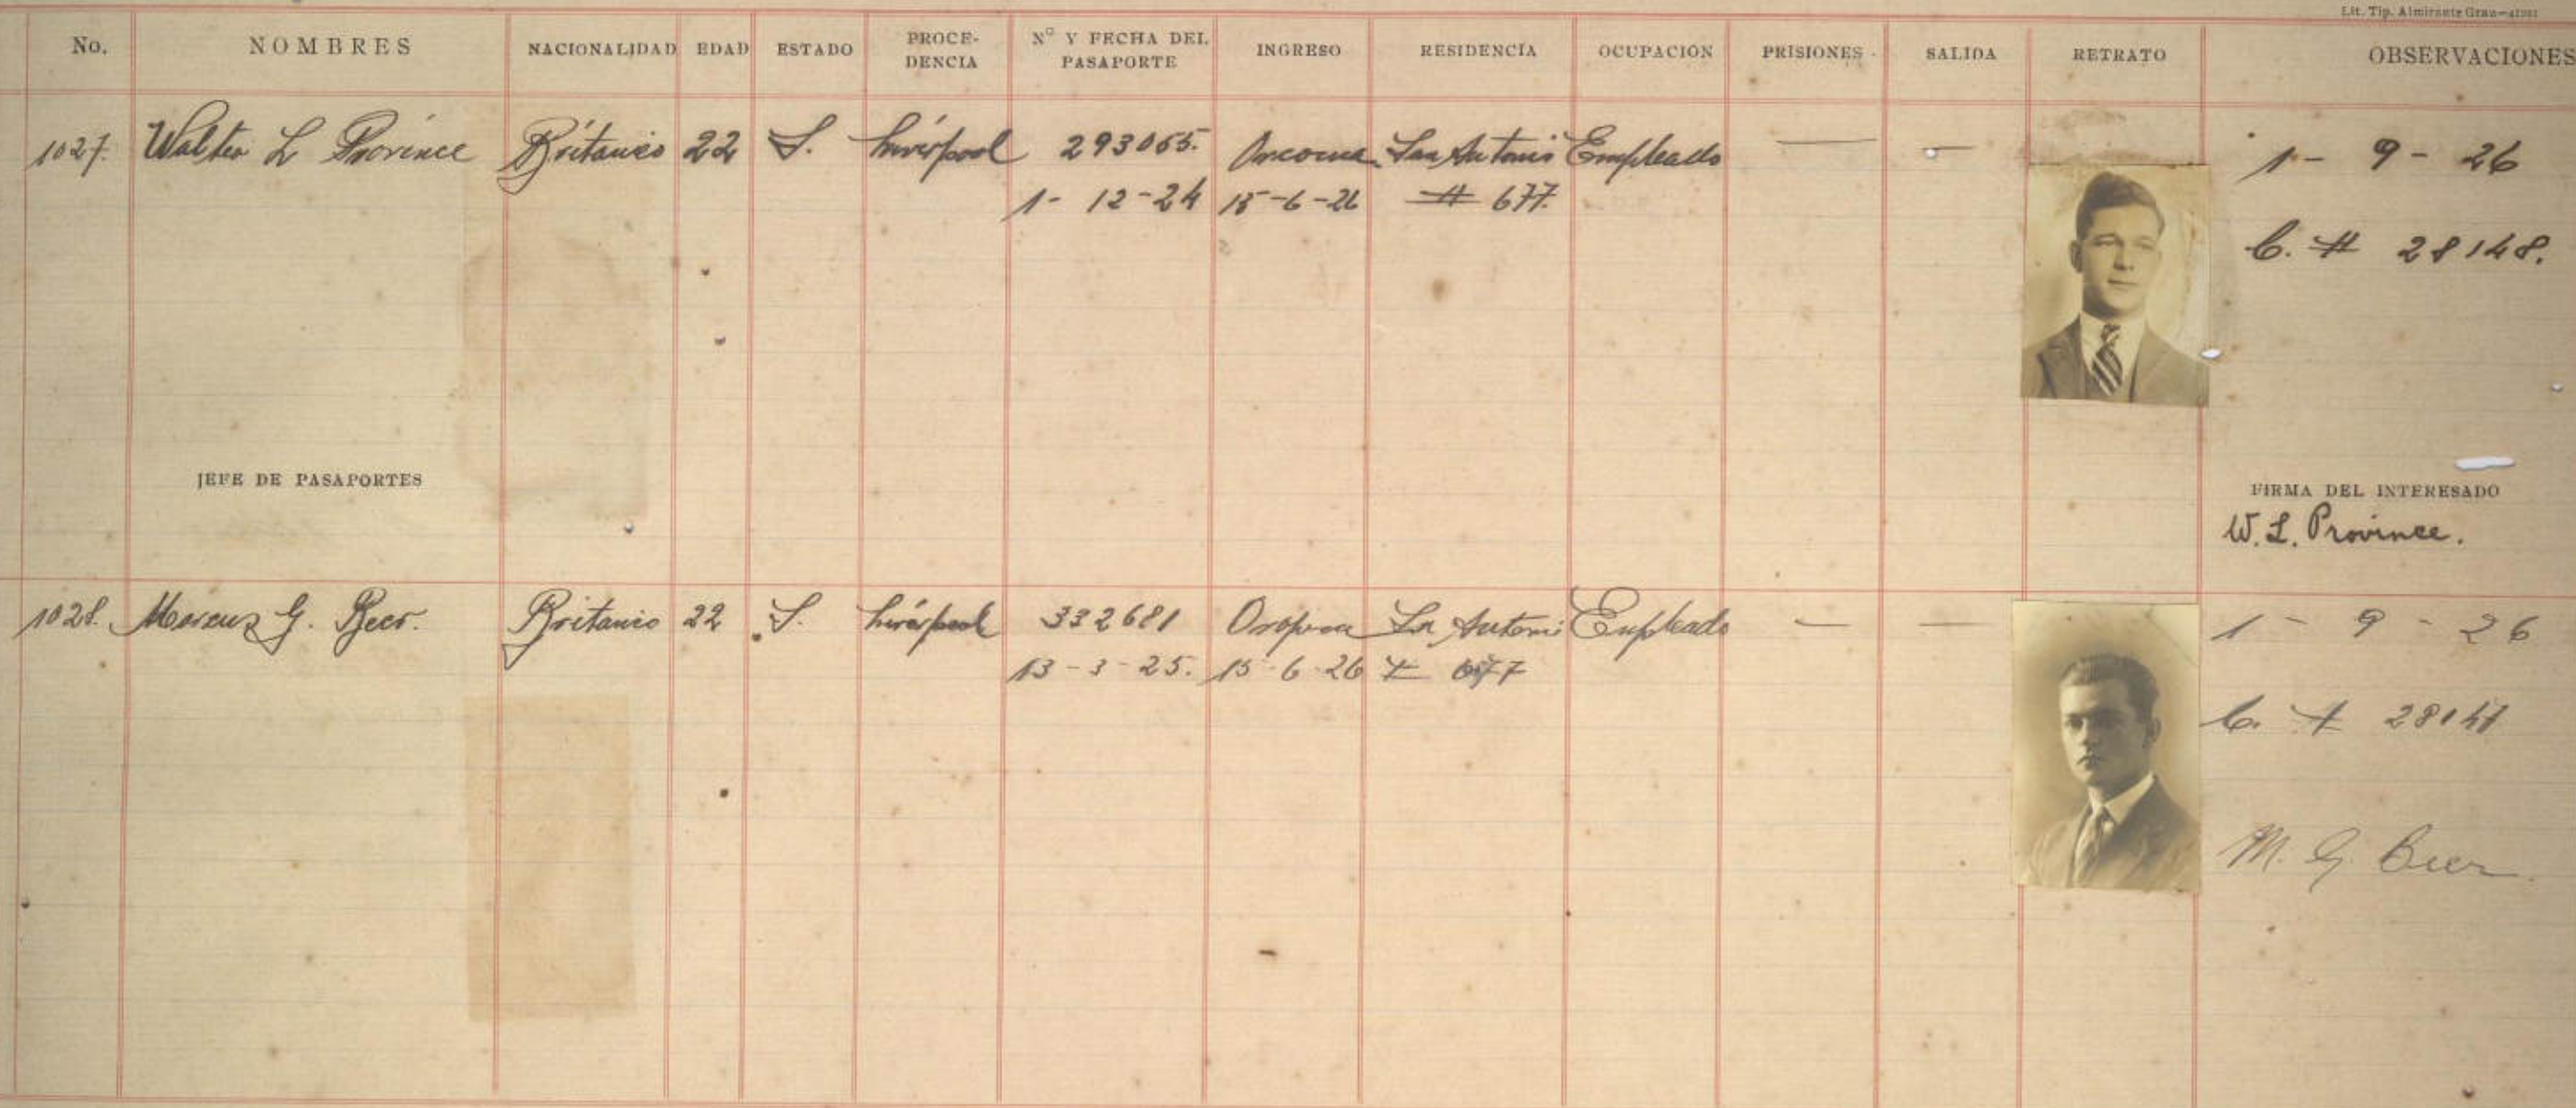 Lit. Tip. Almirante Grau—41901
No. NOMBRES NACIONALIDAD EDAD ESTADO PROCE-DENCIA Nº Y FECHA DEL PASAPORTE INGRESO RESIDENCIA OCUPACIÓN PRISIONES SALIDA RETRATO OBSERVACIONES
1027. Walter L Province Britanico 22 S. Liverpool 293065. Orcoma San Antonio Empleado — — 1 - 9 - 26
1 - 12 - 24 15-6-26 # 677.
C. # 28148.
JEFE DE PASAPORTES FIRMA DEL INTERESADO
W. L. Province.
1028. Marcus G. Beer. Britanico 22 S. Liverpool 332681 Oropesa Sn Antonio Empleado — — 1 - 9 - 26
13 - 3 - 25. 15-6-26 # 677
C. #
M. G. Beer.